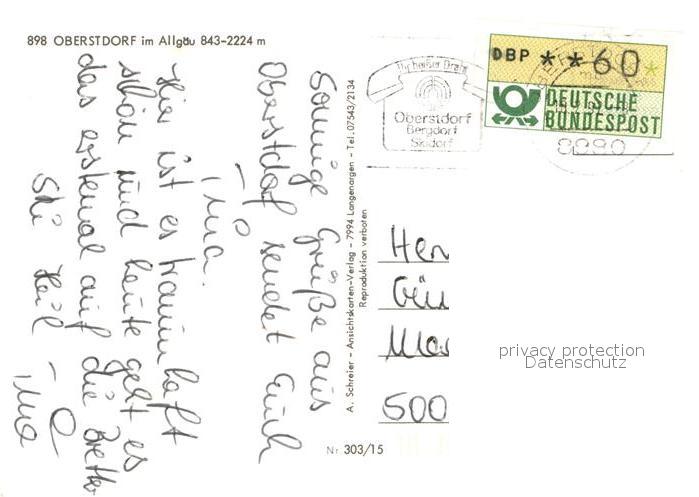 898 OBERSTDORF im Allgäu 843-2224 m
Sonnige Grüße aus
Oberstdorf sendet Euch
Tina.
Hier ist es traumhaft
schön und heute geht es
das erstemal auf die Bretter
Ski Heil
Tina
A. Schreier - Ansichtskarten-Verlag - 7994 Langenargen - Tel. 07543/2134
Reproduktion verboten
Nr. 303/15
Ihr heißer Draht
Oberstdorf
Bergdorf
Skidorf
DBP **60*
DEUTSCHE
BUNDESPOST
Her
Gün
500
privacy protection
Datenschutz